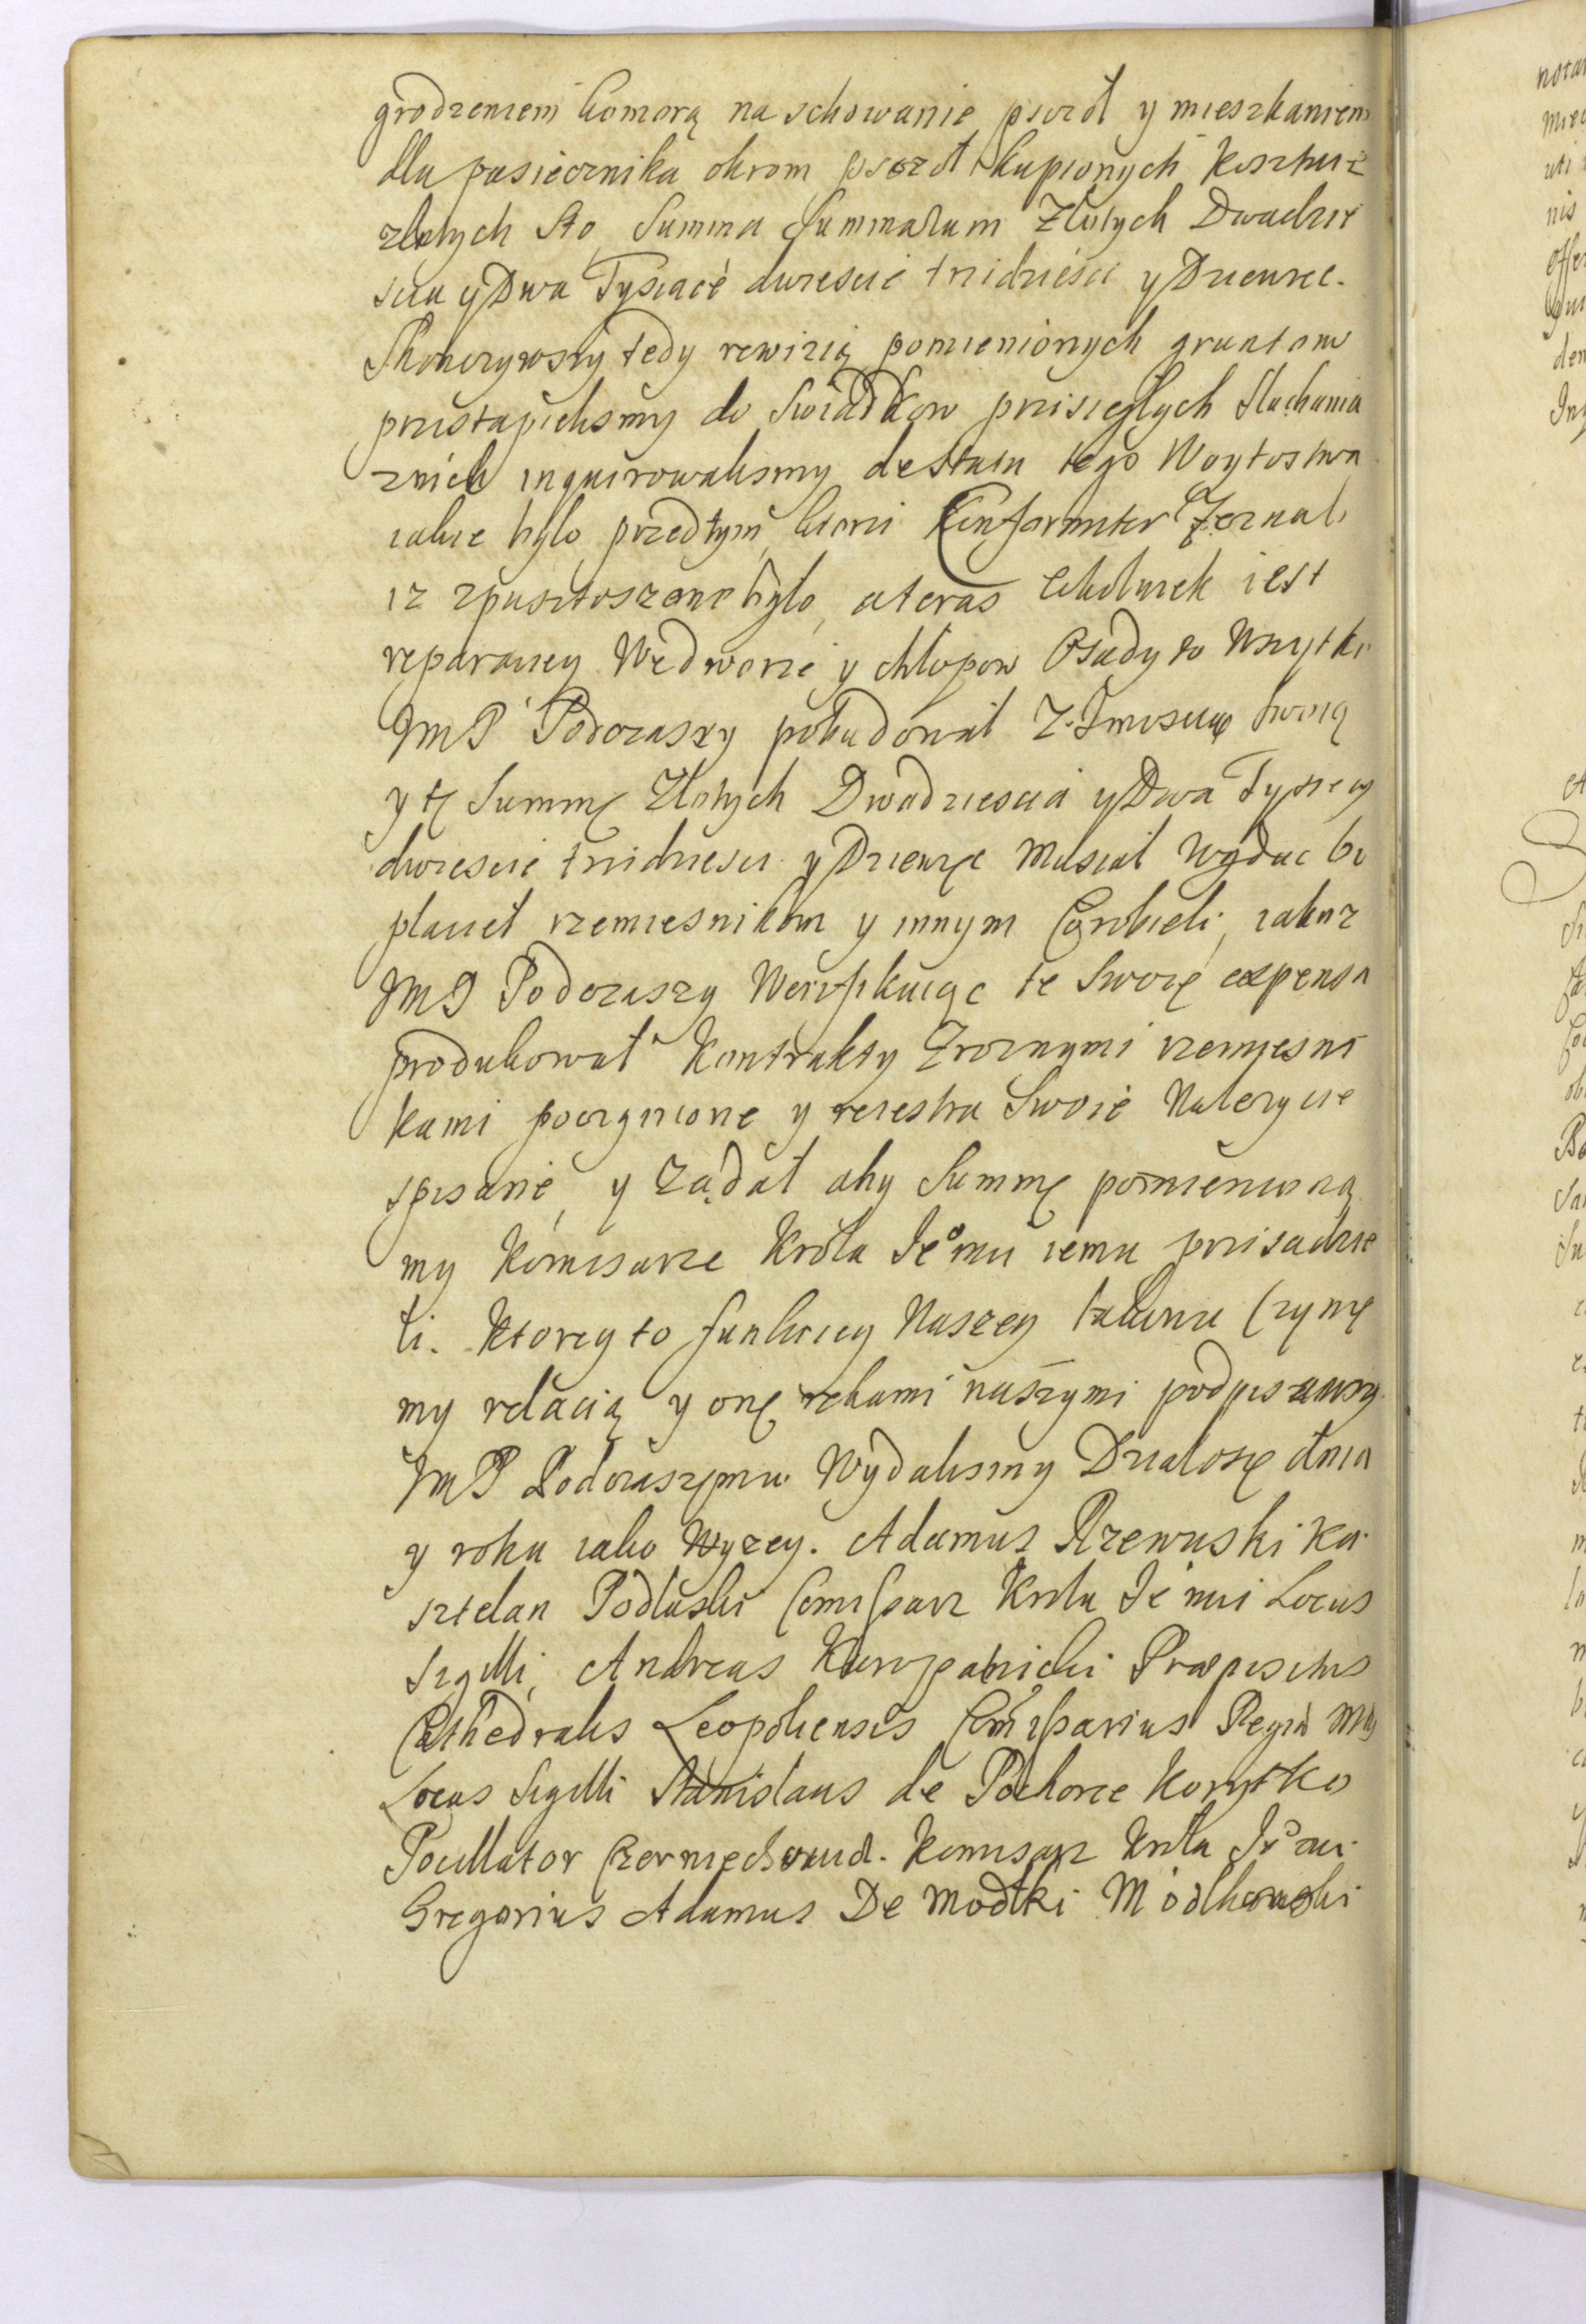 grodzeniem komorą na schowanie psczół y mieszkaniem
dla pasiecznika okrom psczół kupionych kosztuie
złotych sto Summa Summarum Złotych Dwadzie
scia y Dwa Tysiącé dwiescie trzidziesci y Dziewięc.
Skonczywszy tedy rewizią pomienionych gruntow
przistąpielismy do Swiadkow przisięgłych słuchania
znich inquirowalismy destatu tego Woytostwa
iakie było przedtym, ktorzi Conformiter Zeznali
iz zpustoszone było, a teras cokolwiek iest
reparaciey Wedworze y chłopow Osady to Wszytko
JmP Podczaszy pobudował Z Jmoscią swoią
y tę Summę Złotych Dwadziescia y Dwa Tysięcy
dwiescie trzidziesci y Dziewięc Musiał Wydac bo
płacieł rzemiesnikom y innym Co robieli, iakoz
JmP Podczaszy Werifikuiąc te Swoię expensa
produkował Kontrakty Zroznymi rzemiesni
kami poczynione y reiestra Swoie Nalezycie
spisane, y ządał aby Summę pomienioną
my Komisarze Króla Jeo mci iemu przisadzie
li. Ktorey to funkciey Naszey takową Czynię
my relacią y onę rękami naszymi podpisawszy
JmP Podczaszemu Wydalismy Działosię dnia
y roku iako Wyzey. Adamus Rzewuski Ka
sztelan Podlaski Comissarz Krola Jeo mci Locus
Sigilli, Andreas Præpositus
Cathedralis Leopoliensis Comissarius Regiæ Mtis
Locus Sigilli Stanislaus de Pohorce Korytko
Pocillator Komisarz Króla Jeo mci
Gregorius Adamus De Modłki Modlkowski